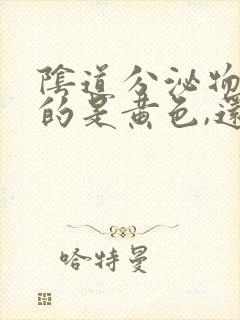 陰道分泌物
的是黄色,還
哈特曼